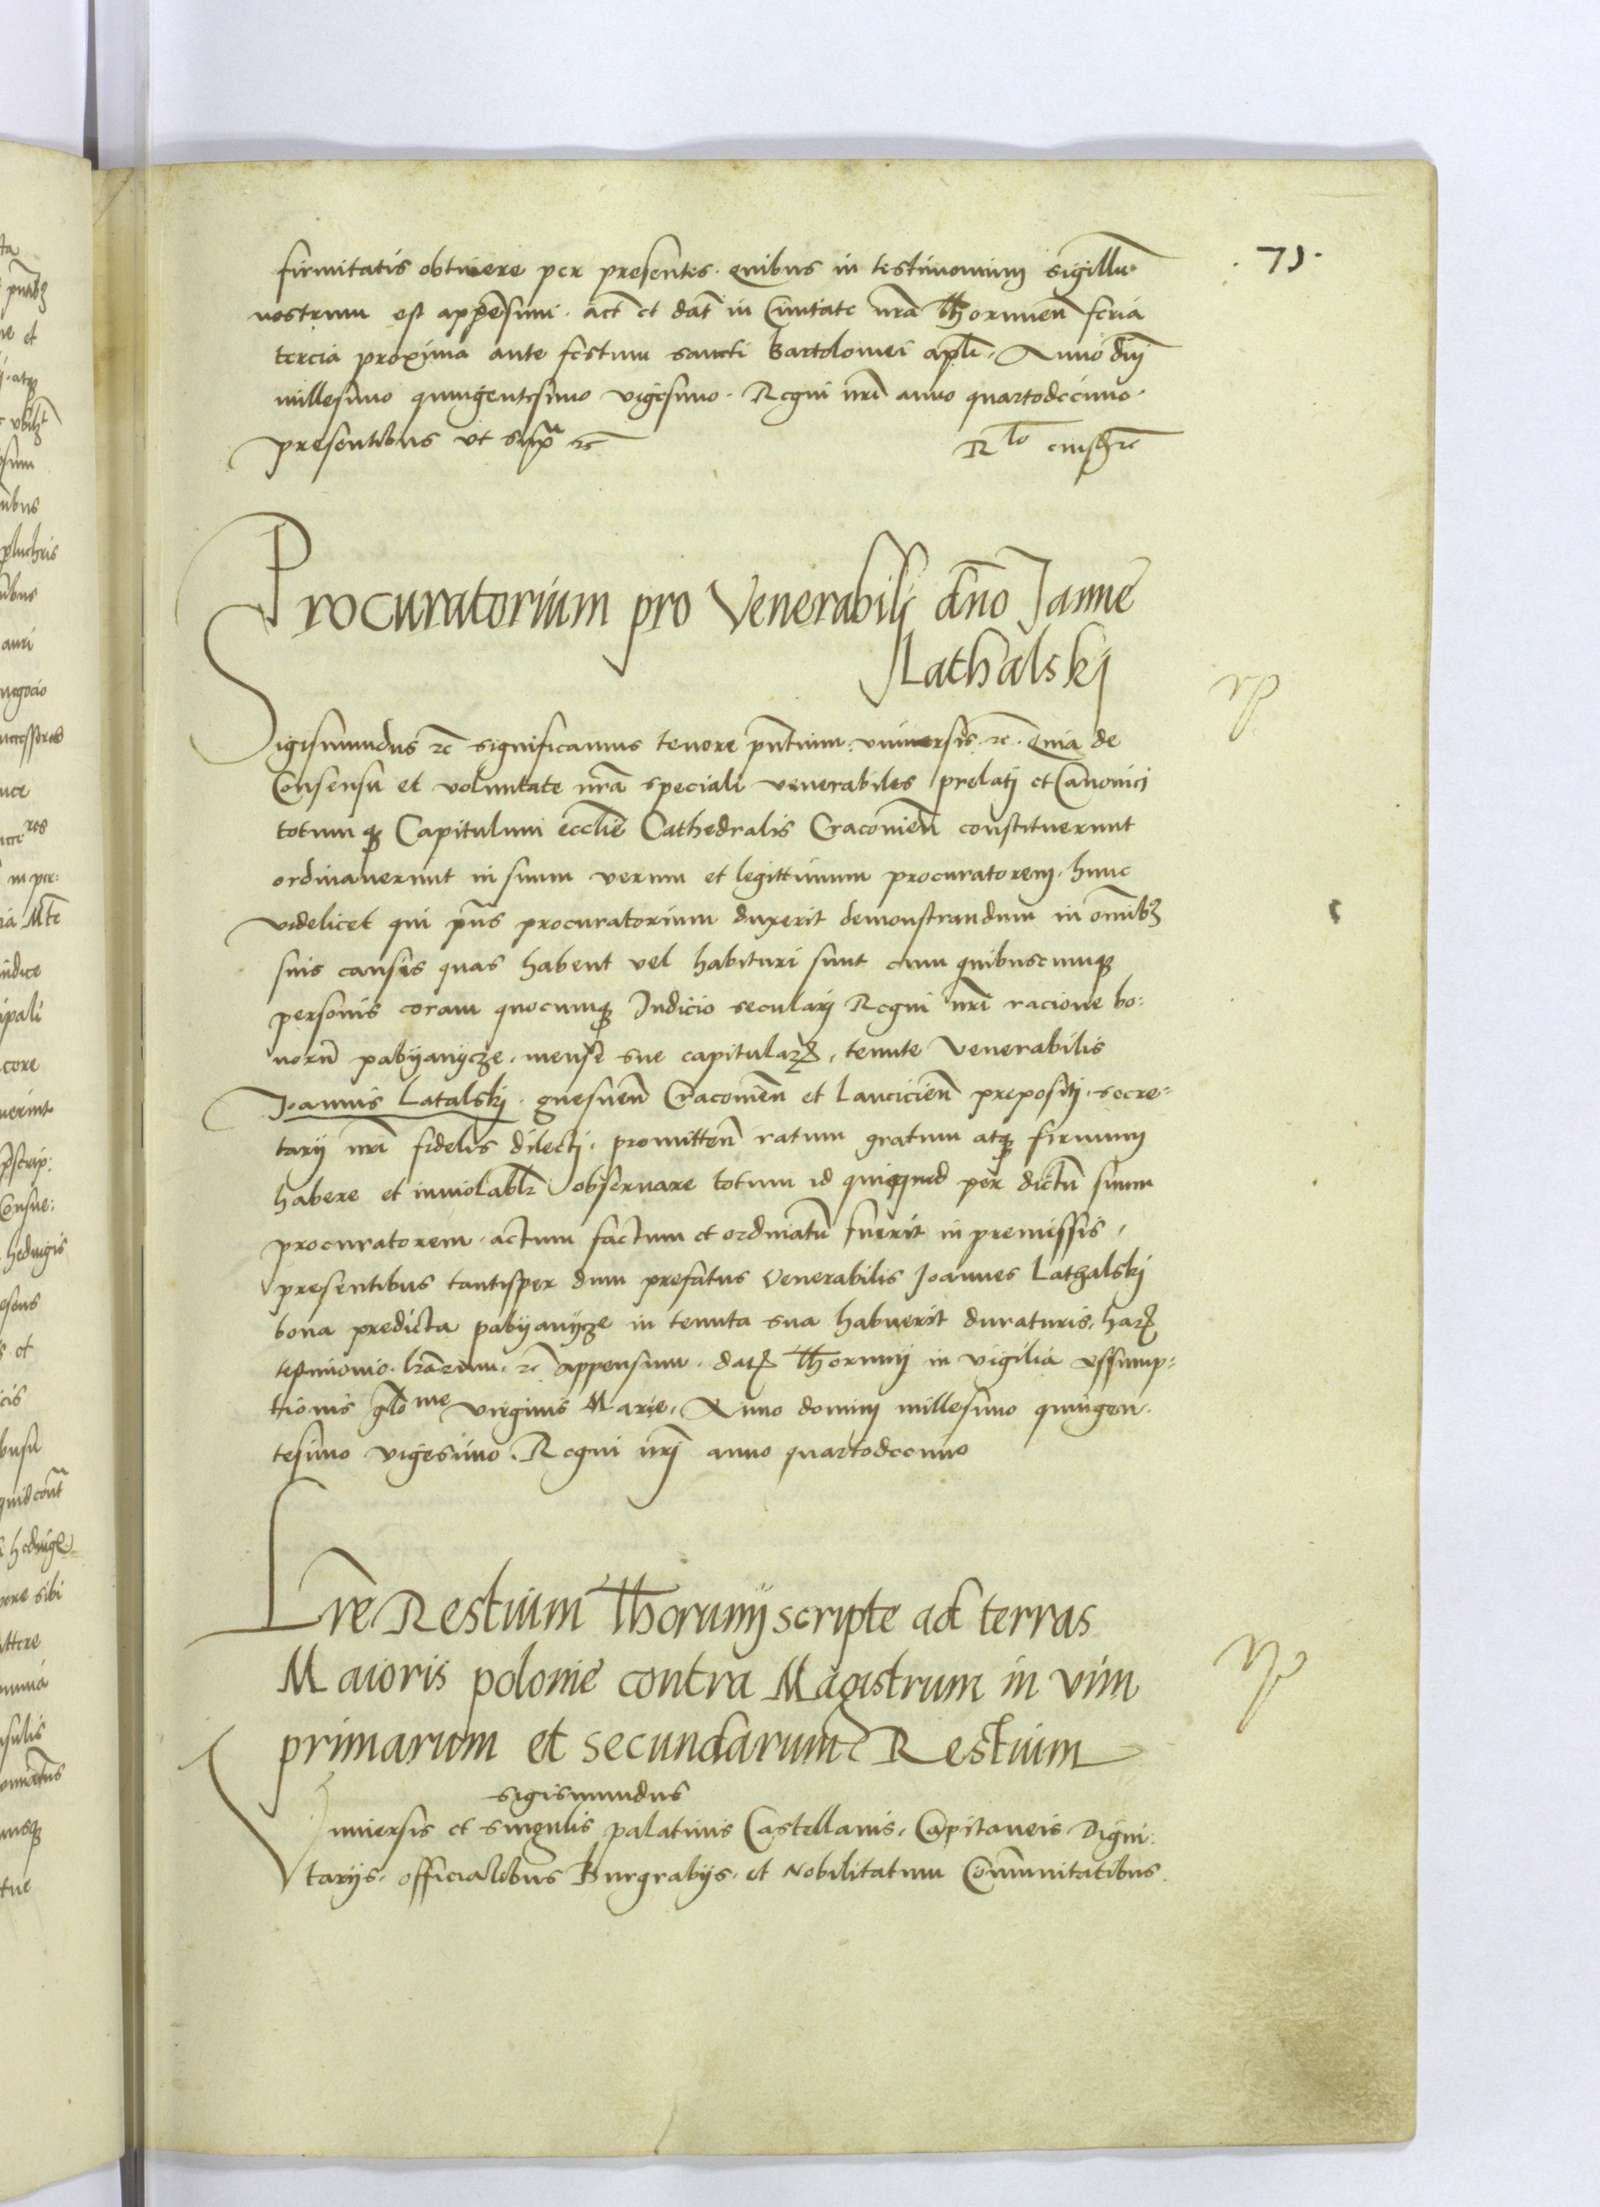 . 71 .
firmitatis obtinere per presentes. quibus in testimonium sigillu
nostrum est appensum. act et dat in Civitate nra Thorunien feria
tercia proxima ante festum sancti Bartolomei apli. Anno dni
millesimo quingentesimo vigesimo. Regni nri anno quartodecimo.
presentibus ut supra etc Rlo eiusdem
Procuratorium pro Venerabilj dno Janne
Lathalskj
Sigismundus etc significamus tenore pntium. universis etc. Quia de
Consensu et voluntate nra speciali venerabiles prelatj et Canonici
totumq Capitulum ecclie Cathedralis Cracovien constituerunt
ordinaverunt in suum verum et legittimum procuratorem. hunc
videlicet qui pns procuratorium duxerit demonstrandum in omnib
suis causis quas habent vel habituri sunt cum quibuscumq
personis coram quocumq Judicio secularj Regni nri racione bo:
noru pabyanycze. mense sue capitular, tenute Venerabilis
Joannis Latalskj. gnesnen Cracovien et Lancicien prepositj. secre=
tarij nri fidelis dilectj. promitten ratum gratum atq firmum
habere et inviolabl observare totum id quicquid per dictu suum
procuratorem. actum factum et ordinatu fuerit in premissis,
presentibus tantisper dum prefatus Venerabilis Joannes Lathalskj
bona predicta pabyanycze in tenuta sua habuerit duraturis. har
testimonio. lrarum. etc appensum. dat Thorunij in vigilia assump=
tionis glo me virginis Marie. Anno domini millesimo quingen.
tesimo vigesimo. Regni nrj anno quartodecimo
Lre Restium Thorunij scripte ad terras
Maioris polonie contra Magistrum in vim
primarum et secundarum Restium
Sigismundus
Universis et singulis palatinis Castellanis. Capitaneis Digni:
tarijs. officialibus Burgrabijs. et Nobilitatum Comunitatibus.